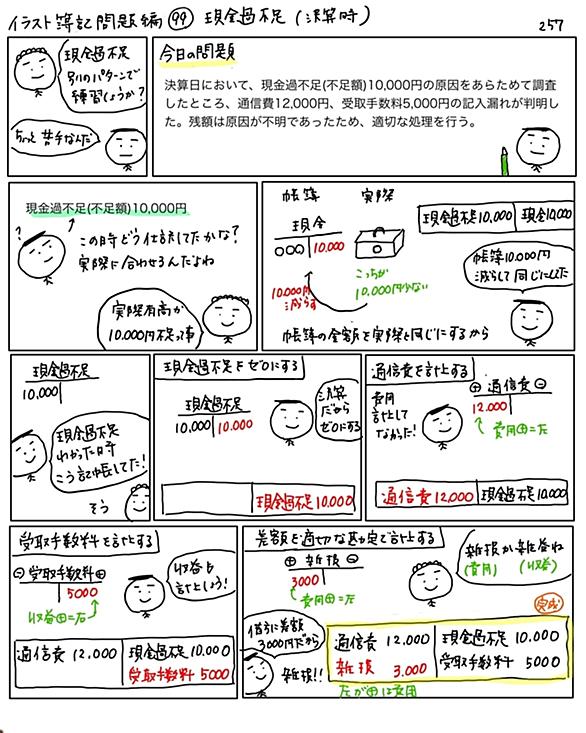 イラスト簿記問題編 99 現金過不足（決算時）
257
現金過不足
別のパターンで
練習しようか？
ちょっと苦手なんだ
今日の問題
決算日において、現金過不足(不足額)10,000円の原因をあらためて調査
したところ、通信費12,000円、受取手数料5,000円の記入漏れが判明し
た。残額は原因が不明であったため、適切な処理を行う。
現金過不足(不足額)10,000円
?
この時どう仕訳してたかな？
実際に合わせるんだよね
実際有高が
10,000円不足って事
帳簿 実際
現金
○○○ 10,000
10,000円
減らす
こっちが
10,000円少ない
現金過不足 10,000 現金 10,000
帳簿10,000円
減らして同じにした
帳簿の金額を実際と同じにするから
現金過不足
10,000
現金過不足
わかった時
こう記帳してた！
そう
現金過不足をゼロにする
現金過不足
10,000 10,000
決算
だから
ゼロにする
現金過不足 10,000
通信費を計上する
費用
計上して
なかった！
⊕ 通信費 ⊖
12.000
費用⊕=左
通信費 12,000 現金過不足 10,000
受取手数料を計上する
⊖ 受取手数料 ⊕
5000
収益⊕=右
収益も
計上しよう！
通信費 12,000 現金過不足 10,000
受取手数料 5000
差額を適切な勘定で計上する
⊕ 雑損 ⊖
3000
費用⊕=左
雑損か雑益ね
(費用) (収益)
借方に差額
3000円だから
雑損!!
完成
通信費 12,000 現金過不足 10,000
雑損 3.000 受取手数料 5000
左が⊕は費用